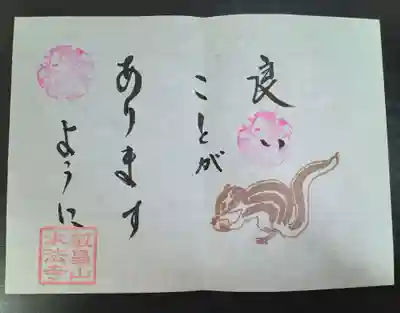 良い
ことが
あります
ように
叡昌山
大法寺